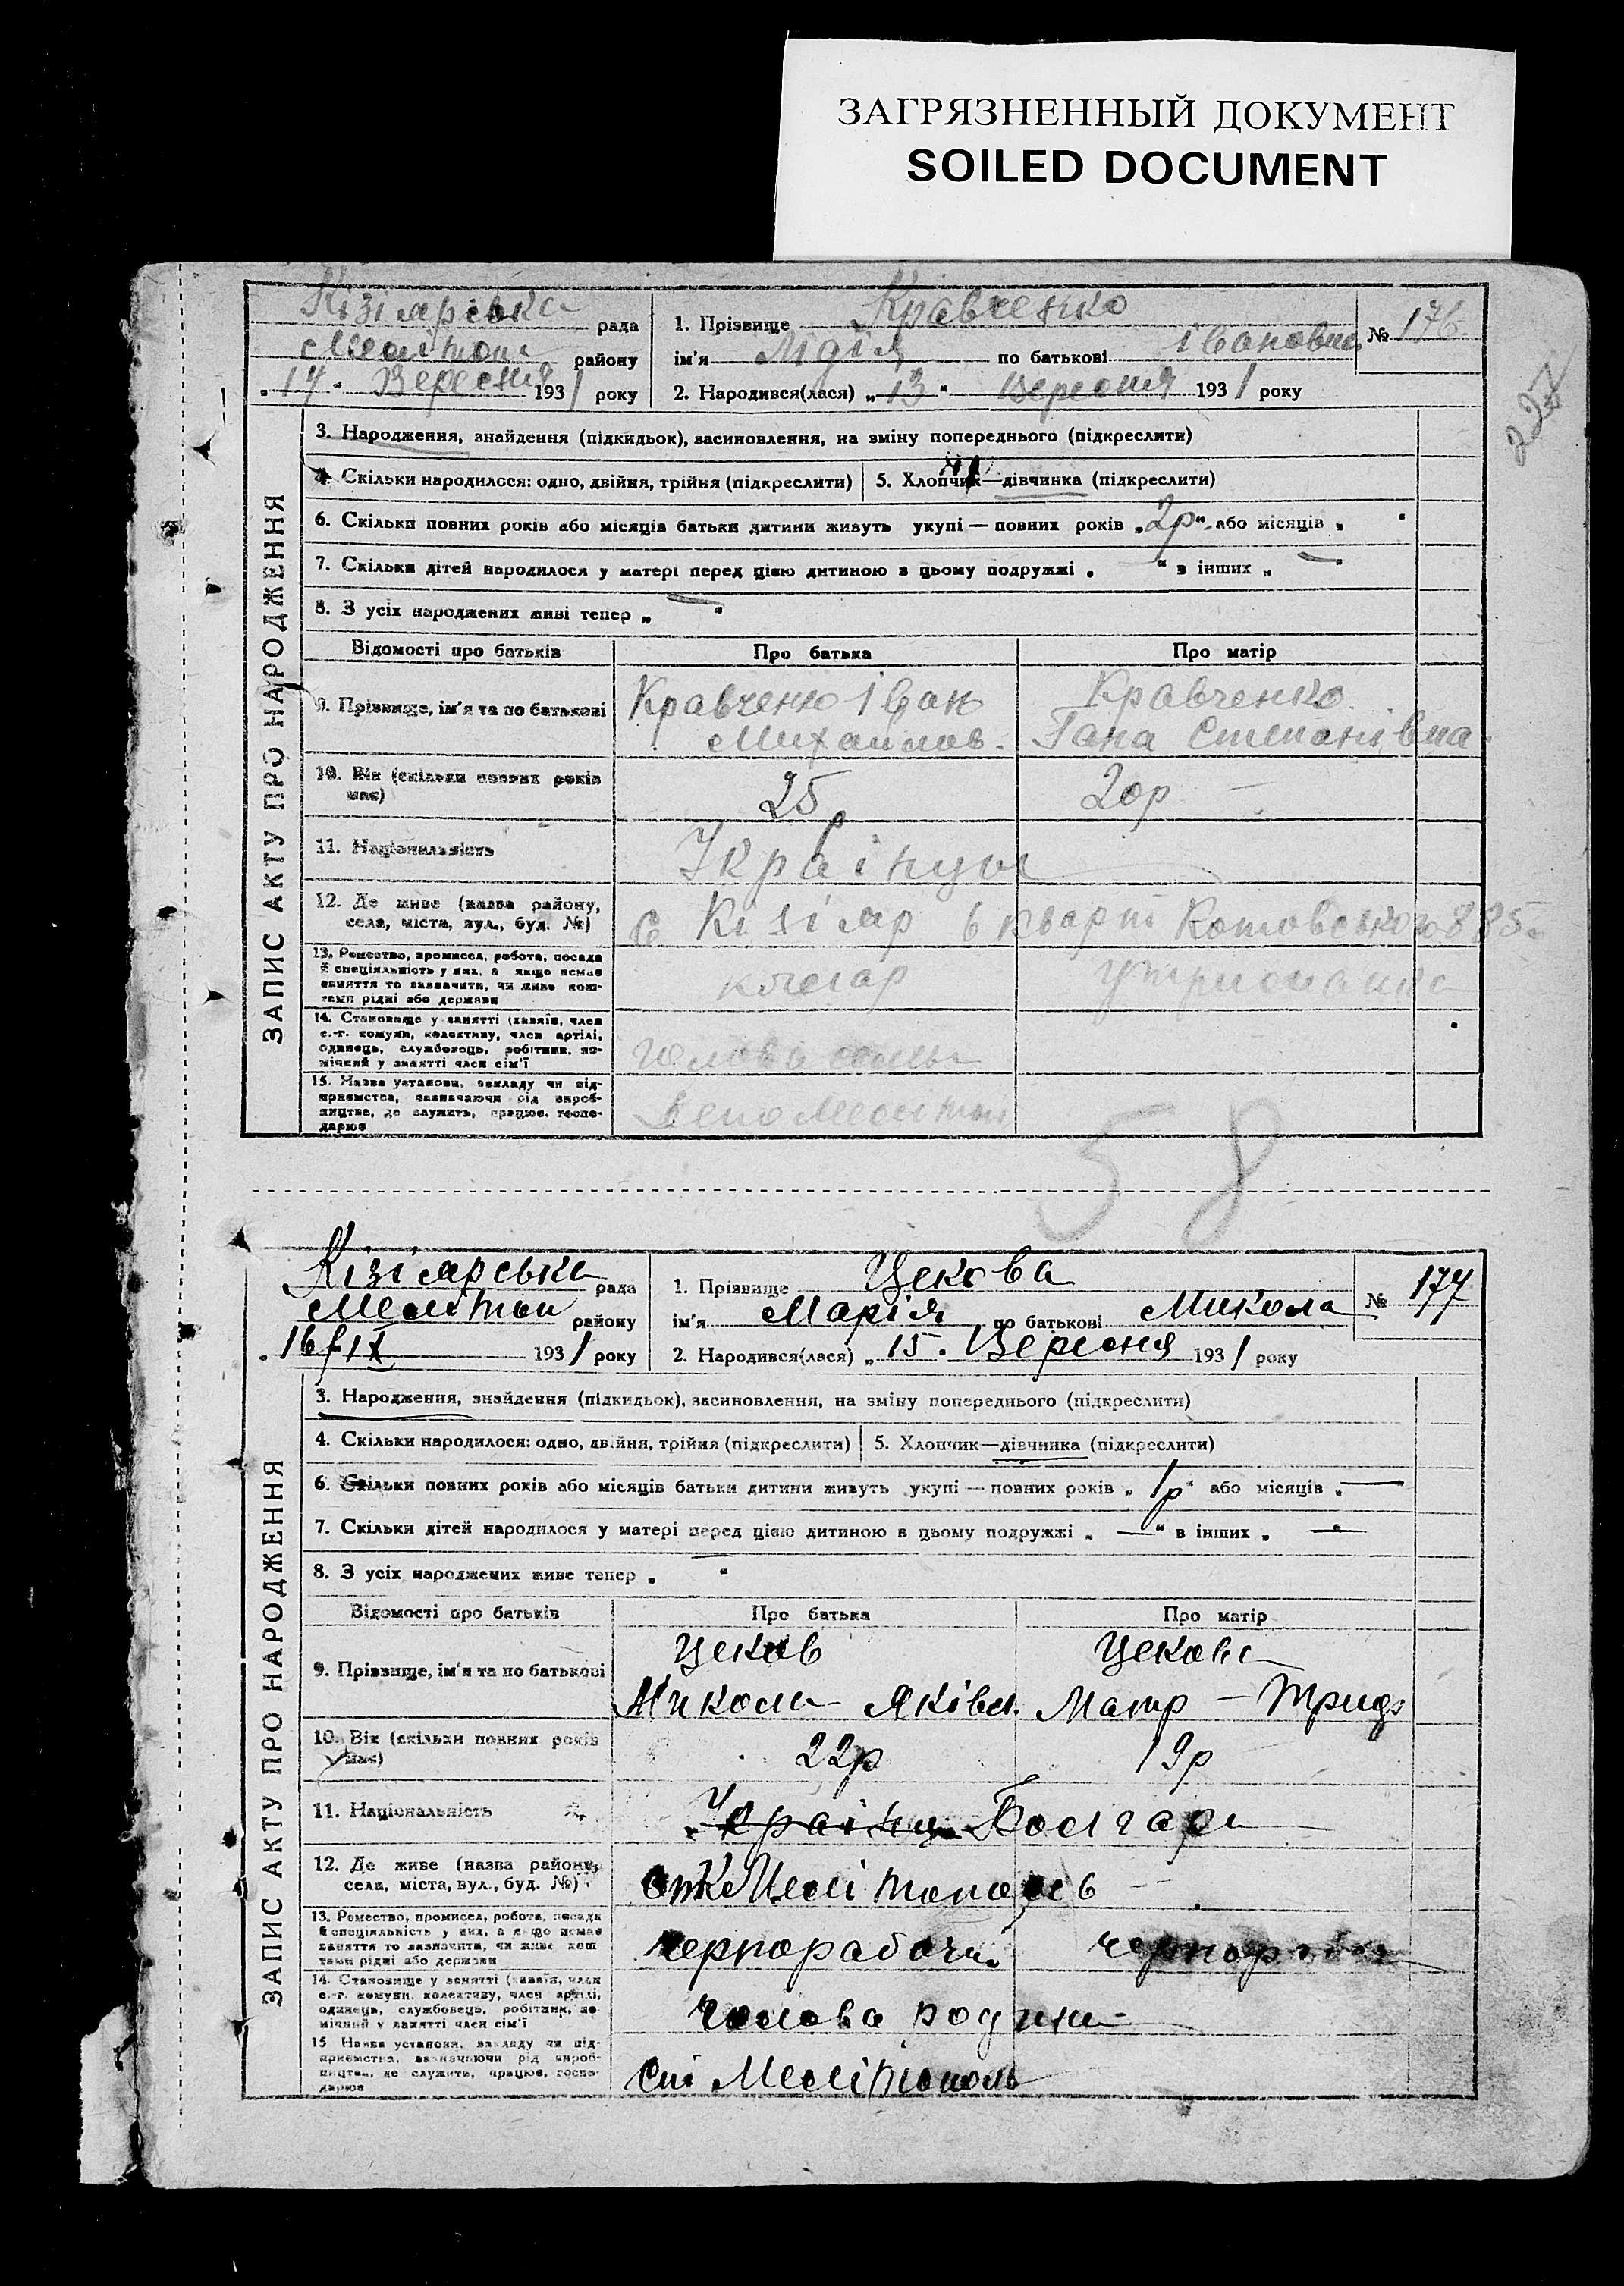 ЗАГРЯЗНЕННЫЙ ДОКУМЕНТ
SOILED DOCUMENT
227
ЗАПИС АКТУ ПРО НАРОДЖЕННЯ
Кізіярська рада
Мелітоп. району
„14“ Вересня 1931 року
1. Прізвище Кравченко
№ 176
ім'я Лідія по батькові Івановна
2. Народився(лася) „13“ Вересня 1931 року
3. Народження, знайдення (підкидьок), засиновлення, на зміну попереднього (підкреслити)
4. Скільки народилося: одно, двійня, трійня (підкреслити) 5. Хлопчик—дівчинка (підкреслити)
6. Скільки повних років або місяців батьки дитини живуть укупі — повних років „2р“ або місяців „ “
7. Скільки дітей народилося у матері перед цією дитиною в цьому подружжі „ “ в інших „ — “
8. З усіх народжених живі тепер „ — “
Відомості про батьків Про батька Про матір
9. Прізвище, ім'я та по батькові
Кравченко Іван
Михайлов.
Кравченко
Гана Степанівна
10. Вік (скільки повних років
має)
25 20р —
11. Національність
Українцы
12. Де живе (назва району,
села, міста, вул., буд. №)
с Кізіяр 6 кварт Котовського 885
13. Ремество, промисел, робота, посада
й спеціяльність у них, а якщо немає
заняття то зазначити, чи живе кош-
тами рідні або держави
кочегар
14. Становище у занятті (хазяїн, член
с.-г. комуни, колективу, член артілі,
одинець, службовець, робітник, по-
мічний у занятті член сім'ї
голова семьи
15. Назва установи, закладу чи під-
приємства, зазначаючи рід вироб-
ництва, де служить, працює, госпо-
дарює
Депо Мелітоп
58
ЗАПИС АКТУ ПРО НАРОДЖЕННЯ
Кізіярська рада
Мелітоп району
„16/IX 1931 року
1. Прізвище Цекова
№ 177
ім'я Марія по батькові Микола
2. Народився(лася) „15. Вересня 1931 року
3. Народження, знайдення (підкидьок), засиновлення, на зміну попереднього (підкреслити)
4. Скільки народилося: одно, двійня, трійня (підкреслити) 5. Хлопчик—дівчинка (підкреслити)
6. Скільки повних років або місяців батьки дитини живуть укупі — повних років „1р“ або місяців „ —
7. Скільки дітей народилося у матері перед цією дитиною в цьому подружжі „ —“ в інших „ — “
8. З усіх народжених живе тепер „ — “
Відомості про батьків Про батька Про матір
9. Прізвище, ім'я та по батькові
Цеков
Цекова
10. Вік (скільки повних років
має)
22р 19р
11. Національність
Українц. Болгари
12. Де живе (назва району,
села, міста, вул., буд. №)
13. Ремество, промисел, робота, посада
й спеціяльність у них, а якщо немає
заняття то зазначити, чи живе кош
тами рідні або держави
чернорабочий
14. Становище у занятті (хазяїн, член
с.-г. комуни, колективу, член артілі,
одинець, службовець, робітник, по-
мічний у занятті член сім'ї
голова родини
15 Назва установи, закладу чи під-
приємства, зазначаючи рід вироб-
ництва, де служить, працює, госпо-
дарює
Мелітополь